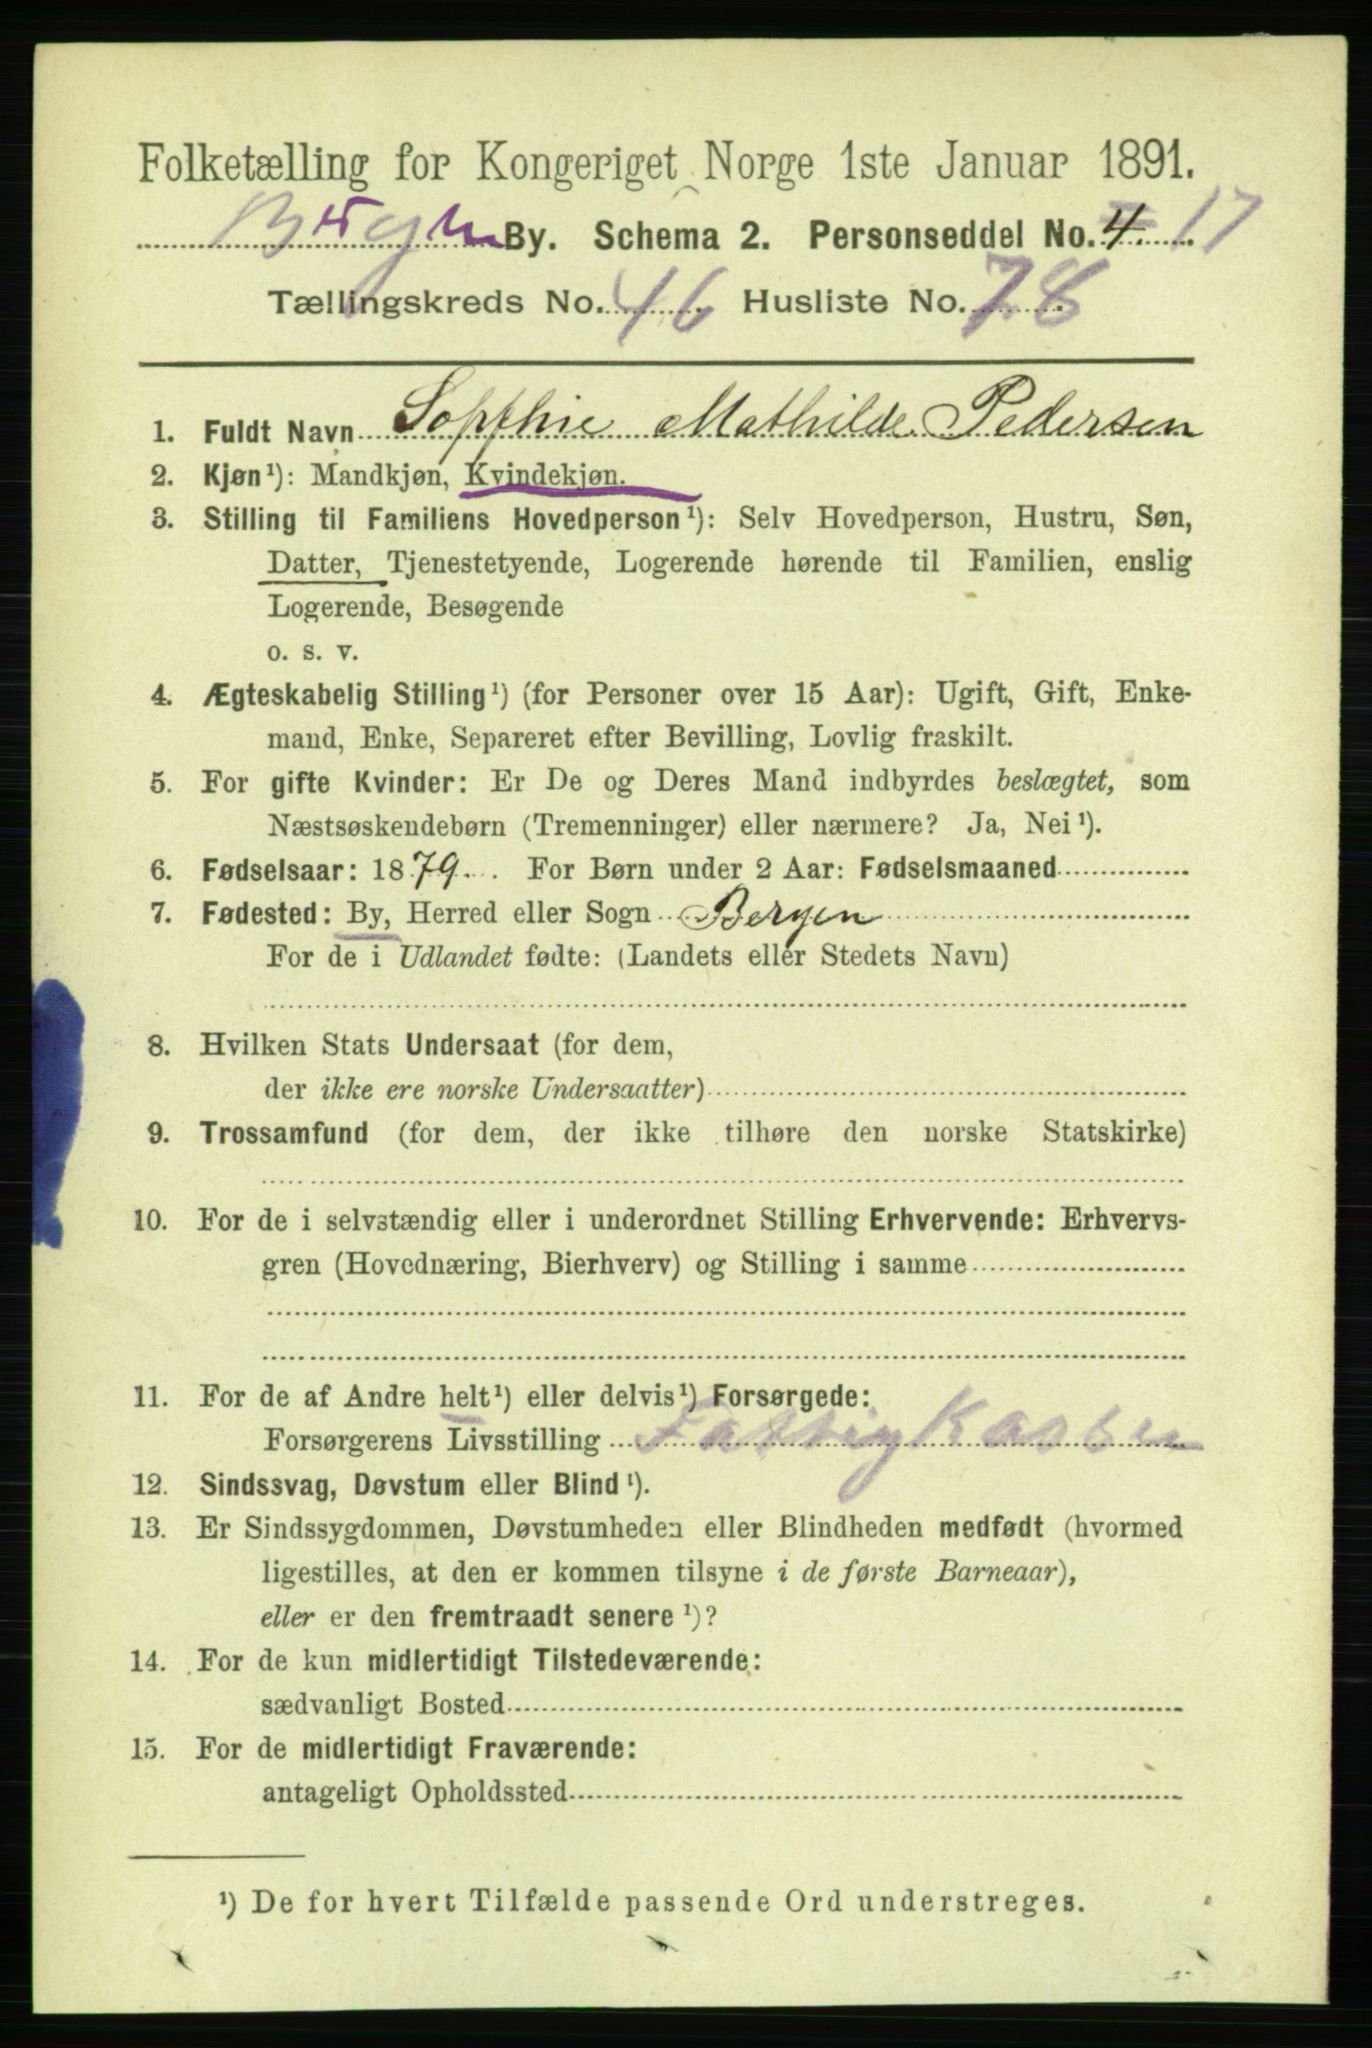 Folketælling for Kongeriget Norge 1ste Januar 1891.
Bergen By. Schema 2. Personseddel No. 4. 17
Tællingskreds No. 46 Husliste No. 78
1. Fuldt Navn Sopfhie Mathilde Pedersen
2. Kjøn¹): Mandkjøn, Kvindekjøn.
3. Stilling til Familiens Hovedperson¹): Selv Hovedperson, Hustru, Søn,
Datter, Tjenestetyende, Logerende hørende til Familien, enslig
Logerende, Besøgende
o. s. v.
4. Ægteskabelig Stilling¹) (for Personer over 15 Aar): Ugift, Gift, Enke-
mand, Enke, Separeret efter Bevilling, Lovlig fraskilt.
5. For gifte Kvinder: Er De og Deres Mand indbyrdes beslægtet, som
Næstsøskendebørn (Tremenninger) eller nærmere? Ja, Nei¹).
6. Fødselsaar: 1879. For Børn under 2 Aar: Fødselsmaaned
7. Fødested: By, Herred eller Sogn Bergen
For de i Udlandet fødte: (Landets eller Stedets Navn)
8. Hvilken Stats Undersaat (for dem,
der ikke ere norske Undersaatter)
9. Trossamfund (for dem, der ikke tilhøre den norske Statskirke)
10. For de i selvstændig eller i underordnet Stilling Erhvervende: Erhvervs-
gren (Hovednæring, Bierhverv) og Stilling i samme
11. For de af Andre helt¹) eller delvis¹) Forsørgede:
Forsørgerens Livsstilling Fattigkassen
12. Sindssvag, Døvstum eller Blind¹).
13. Er Sindssygdommen, Døvstumheden eller Blindheden medfødt (hvormed
ligestilles, at den er kommen tilsyne i de første Barneaar),
eller er den fremtraadt senere¹)?
14. For de kun midlertidigt Tilstedeværende:
sædvanligt Bosted
15. For de midlertidigt Fraværende:
antageligt Opholdssted
¹) De for hvert Tilfælde passende Ord understreges.